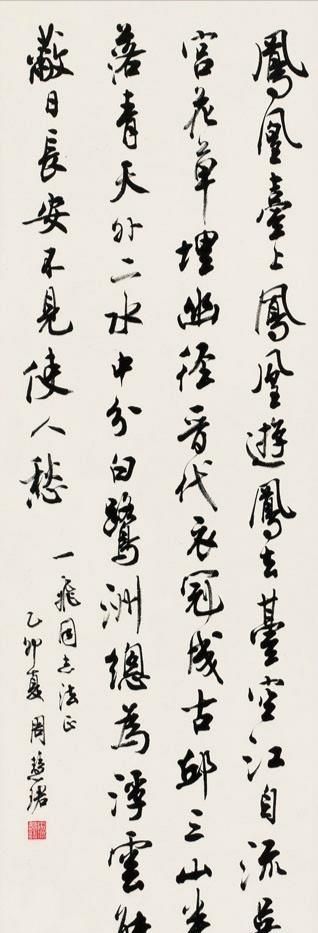 鳳凰臺上鳳凰遊鳳去臺空江自流吳
宮花草埋幽徑晉代衣冠成古邱三山半
落青天外二水中分白鷺洲總為浮雲能
蔽日長安不見使人愁
一飛同志法正
乙卯夏周慧珺